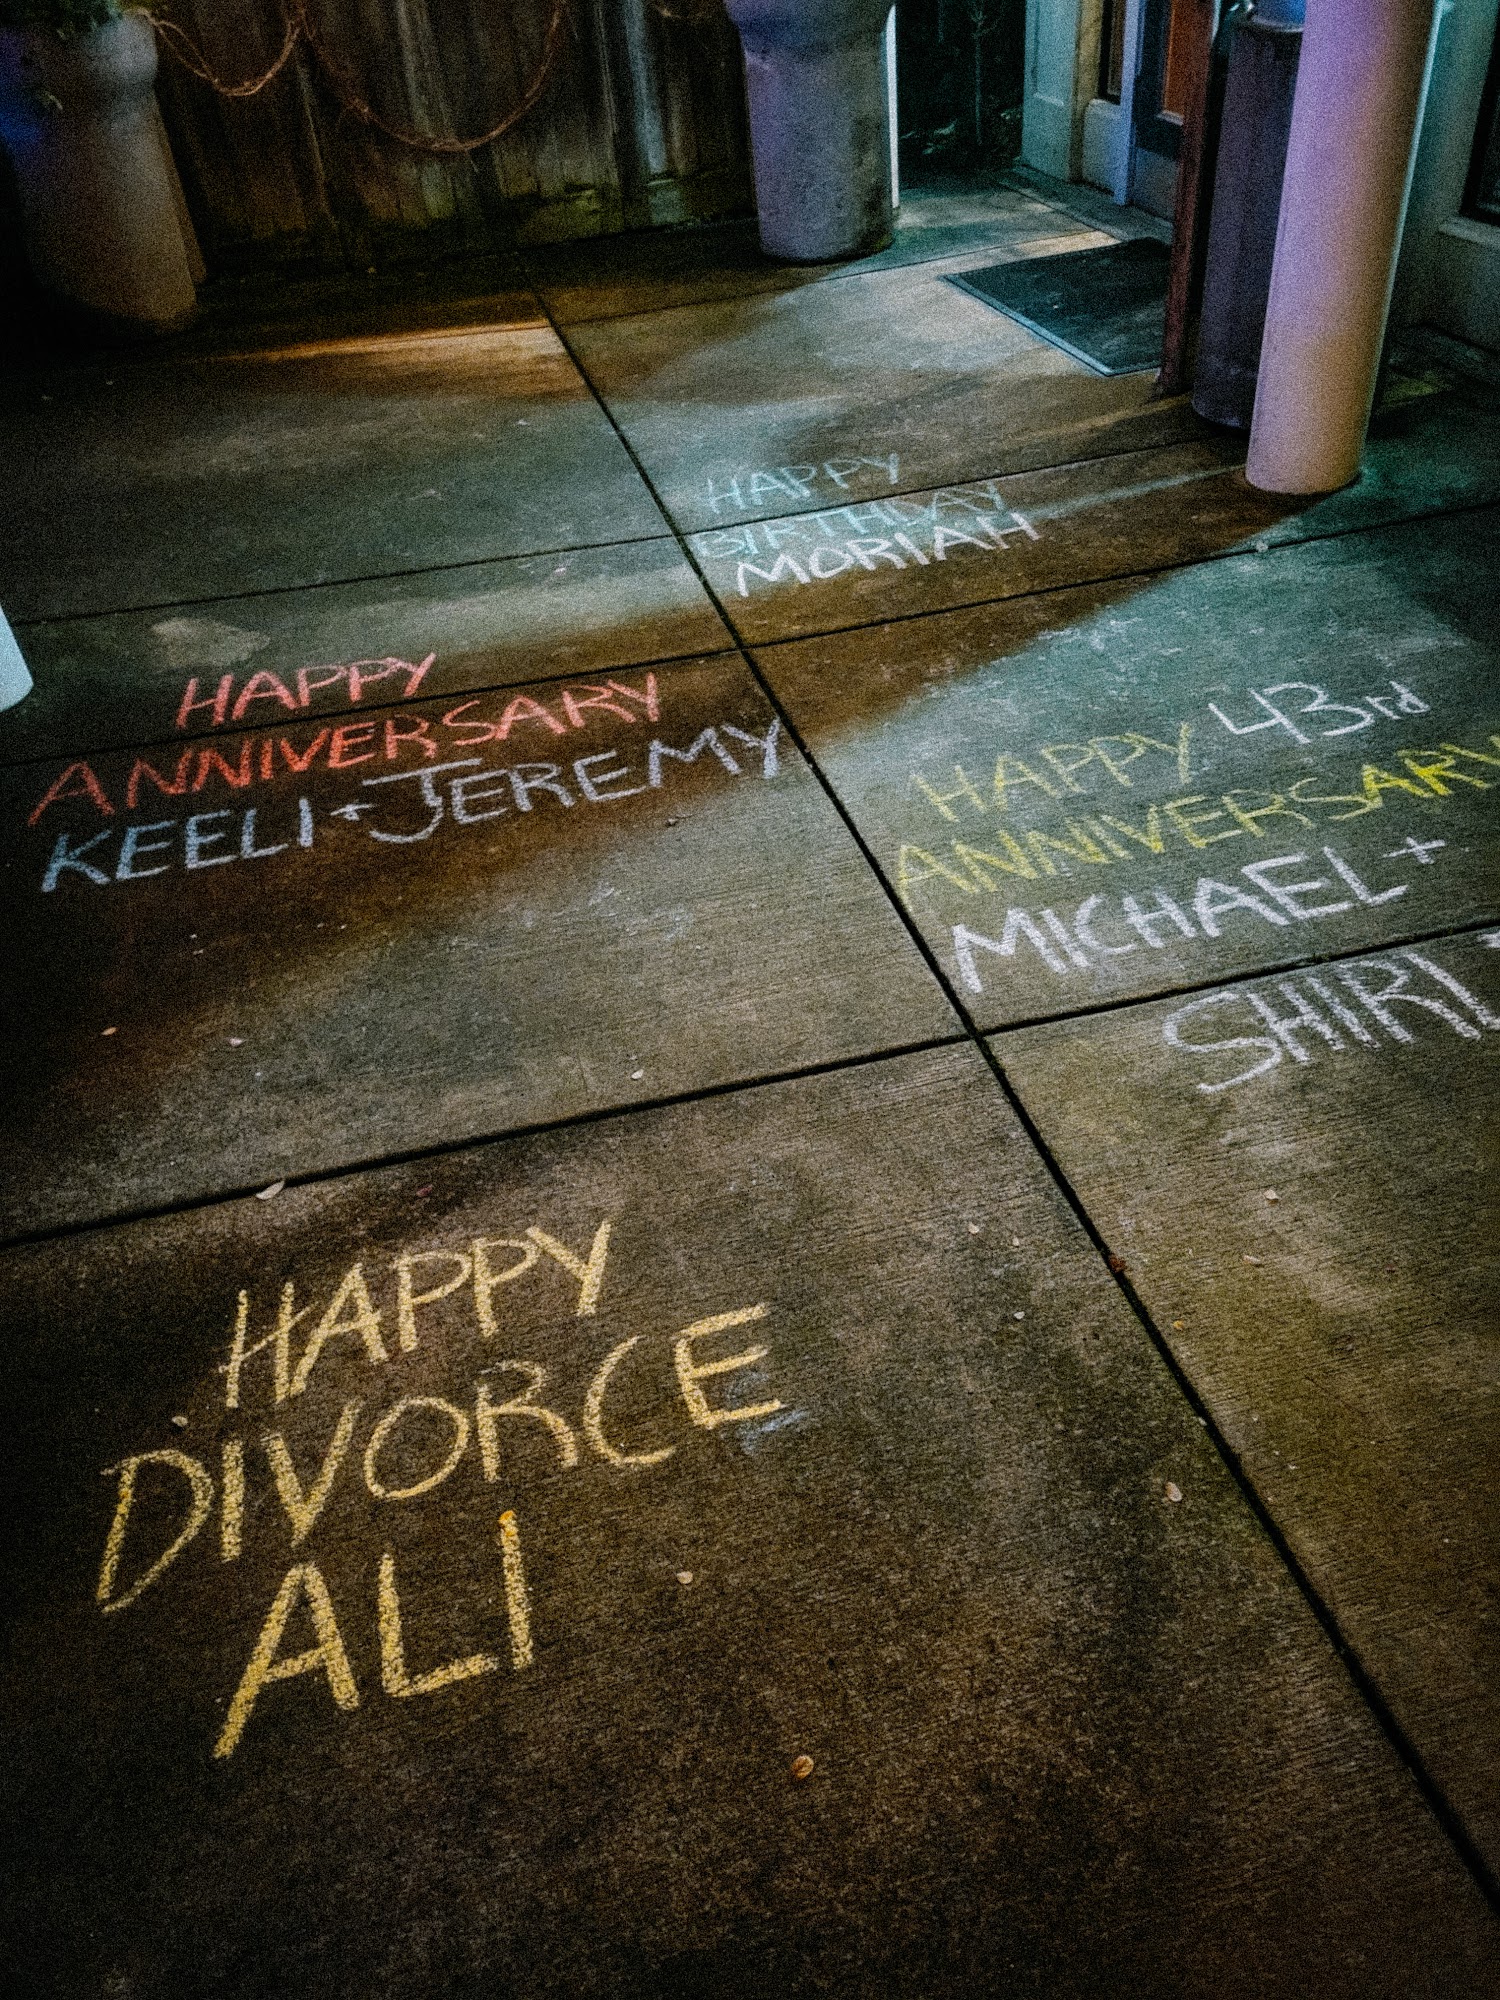 HAPPY
BIRTHDAY
MORIAH
HAPPY
ANNIVERSARY
KEELI + JEREMY
HAPPY 43rd
ANNIVERSARY
MICHAEL +
HAPPY
DIVORCE
ALI